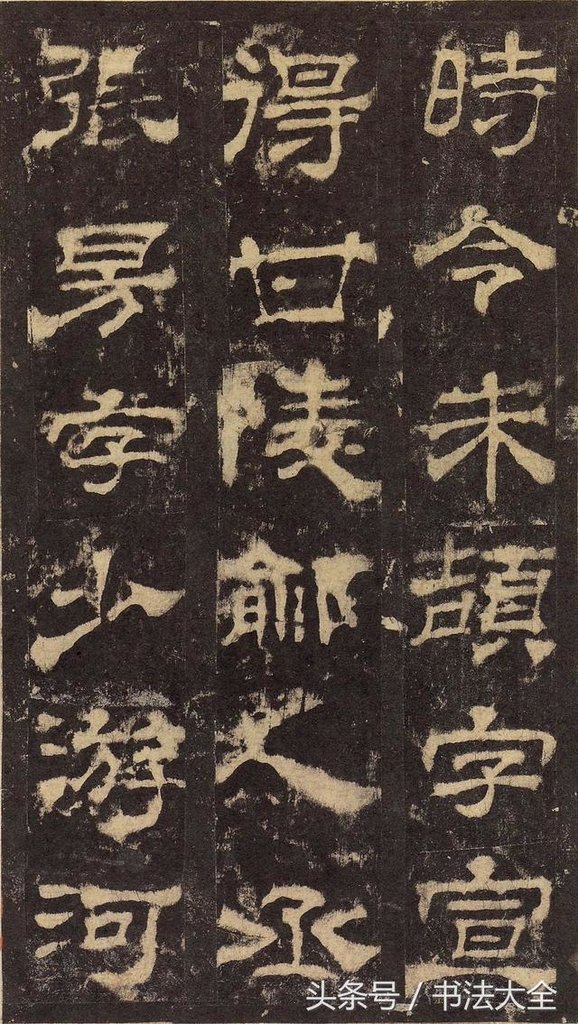 時令朱頡字宣
得甘陵鄃人丞
張昉字少游河
头条号 / 书法大全